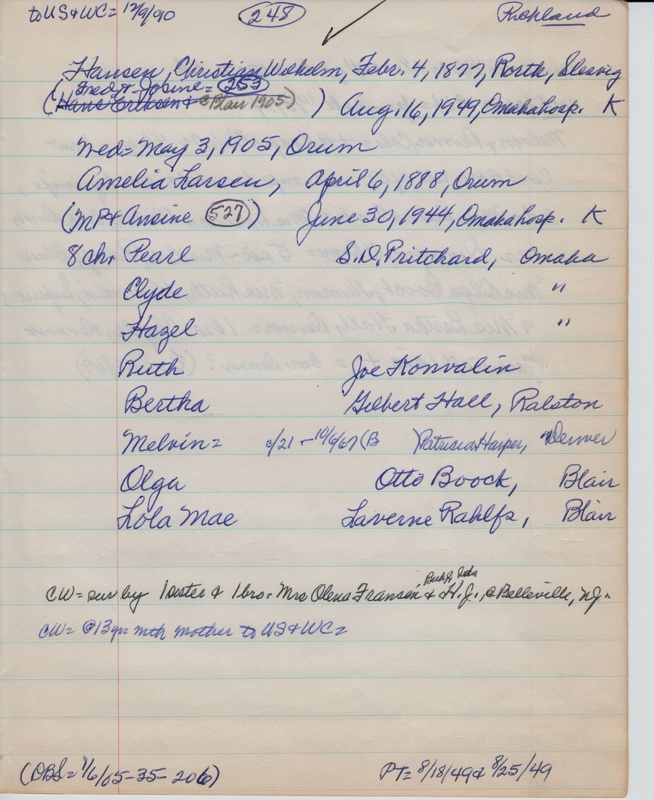 to US & WC = 12/9/90 (248) Richland
Hansen, Christian Wilhelm, Febr. 4, 1877, Rorth, Slesvig
(Fred & Josine = (253)
(Hans Erikson & @ Blair 1905) ) Aug. 16, 1949, Omaha hosp. K
Wed = May 3, 1905, Orum
Amelia Larsen, April 6, 1888, Orum
(MP & Ansine (527)) June 30, 1944, Omaha hosp. K
8 ch. Pearl S.D. Pritchard, Omaha
Clyde "
Hazel "
Ruth Joe Konvalin
Bertha Gilbert Hall, Ralston
Melvin = c/21 - 10/6/67 (B ) Patricia Harper, Denver
Olga Otto Boock, Blair
Lola Mae Laverne Rahlfs, Blair
CW = sur by 1 sister & 1 bro. Mrs Olena Fransen & H.J., @ Belleville, NJ.
CW = @ 13 yr with mother to US & WC =
(DBS = 1/6/05-35-206) PT = 8/18/49 & 8/25/49